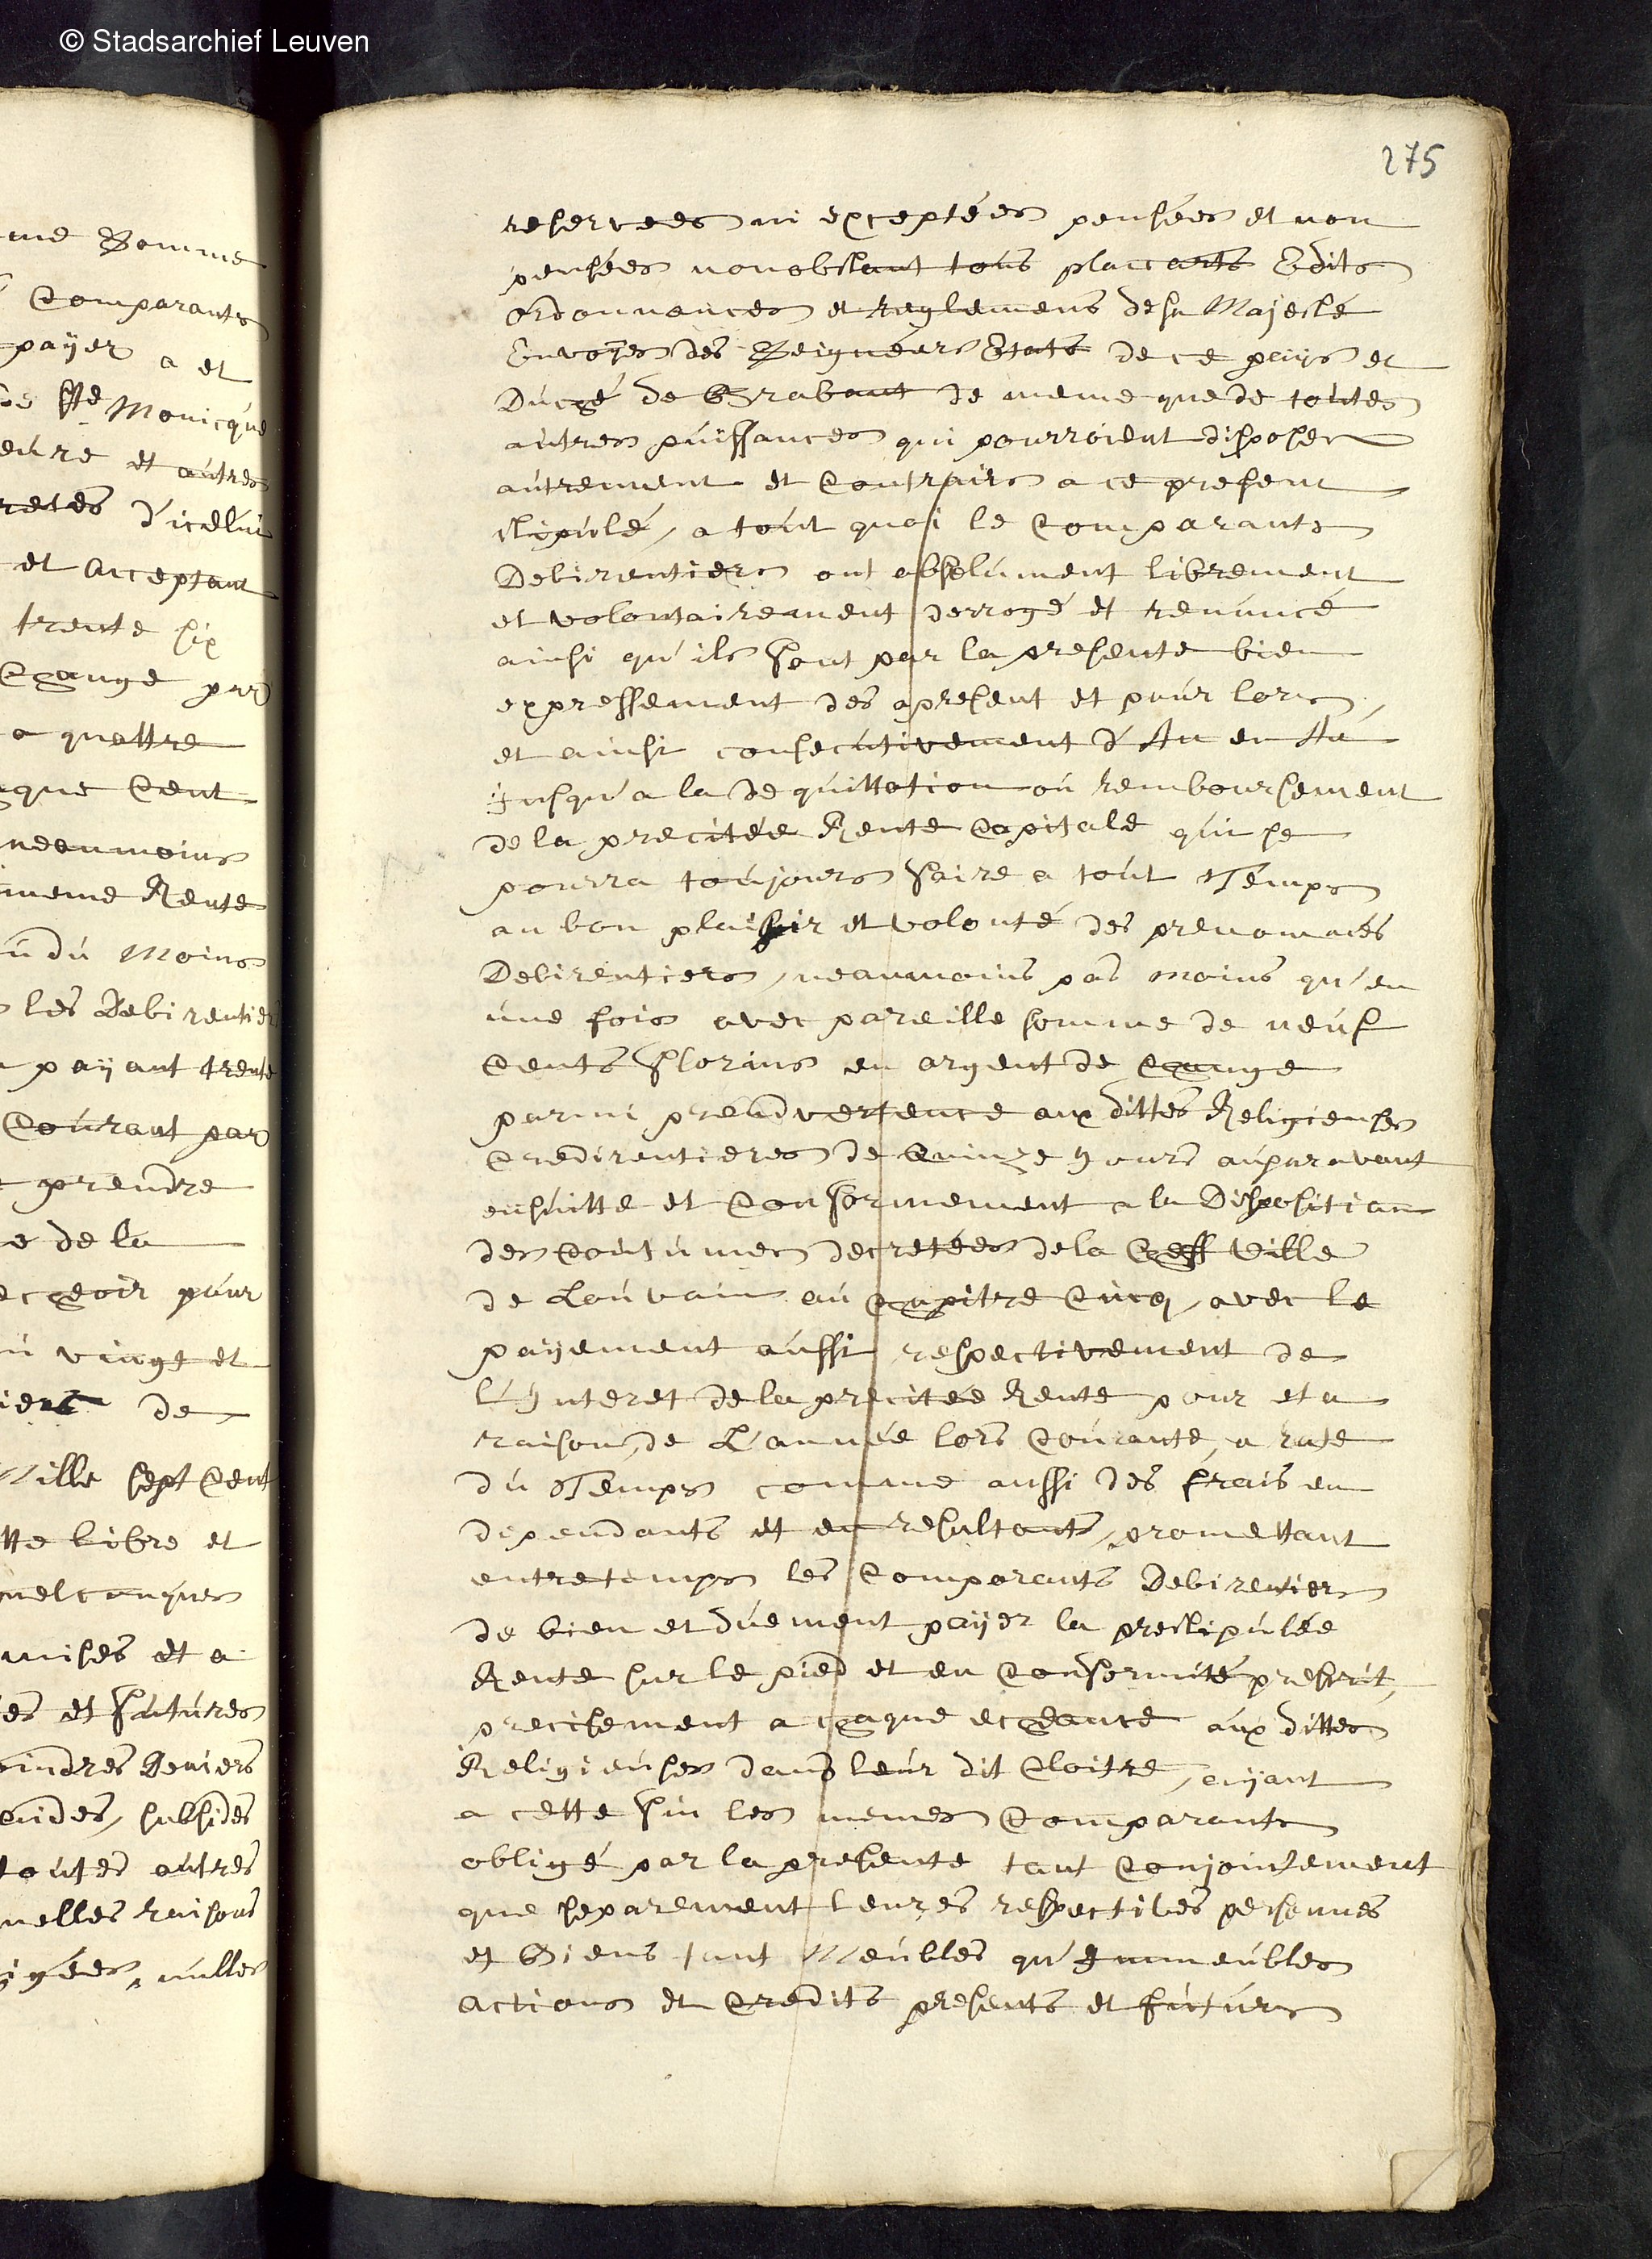 © Stadsarchief Leuven
275
me Somme
Comparants
payer a et
de Ste Monicque
eure et autres
retes d'icelui
et acceptant
trente six
Change par
a quattre
que Cent
neanmoins
meme Rente
u du Moins
les Debirentiers
payant trente
Courant par
prendre
e de la
echeoir pour
u vingt et
de
Mille sept Cent
tte libre et
uelconques
mises et a
es et futures
oindres deniers
aides, subsides
toutes autres
uelles raisons
igées, nulles
reservees ni exceptées pensées et non
pensées nonobstant tous placcarts Edits
ordonnances et reglemens de sa Majesté
Envoyes des Seigneurs Etats de ce pays et
Duché de Brabant de meme que de toutes
autres puissances qui pourroient disposer
autrement et Contraire a ce present
stipulé, a tout quoi le Comparants
Debirentiers ont absolument librement
et volontairement derrogé et renuncé
ainsi qu'ils font par la presente bien
expressement des apresent et pour lors,
et ainsi consecutivement d'An en An
jusqu'a la dequittation ou remboursement
de la precitée Rente Capitale qui se
pourra toujours faire a tout Temps
au bon plaisir et volonté des prenommés
Debirentiers, neanmoins pas moins qu'en
une fois avec pareille somme de neuf
Cents florins en argent de Change
parmi preadvertence aux dittes Religieuses
Credirentieres de Quinze jours auparavant
ensuitte et Conformement a la Disposition
des Coutumes decretées de la Cheff Ville
de Louvain au Chapitre Cincq, avec le
payement aussi respectivement de
l'Jnteret de la precitée Rente pour et a
raison, de L'année lors Courante, a rate
du Temps comme aussi des frais en
dependants et en resultants, promettant
entretemps les Comparants Debirentiers
de bien et duement payer la prestipulée
Rente sur le pied et en Conformité prescrit,
precisement a chaque echeance aux dittes
Religieuses dans leur dit Cloitre, aiyant
a cette fin les memes Comparants
obligé par la presente tant Conjointement
que separement leurs respectives personnes
et Biens tant Meubles qu'Jmmeubles
actions et Credits presents et futurs